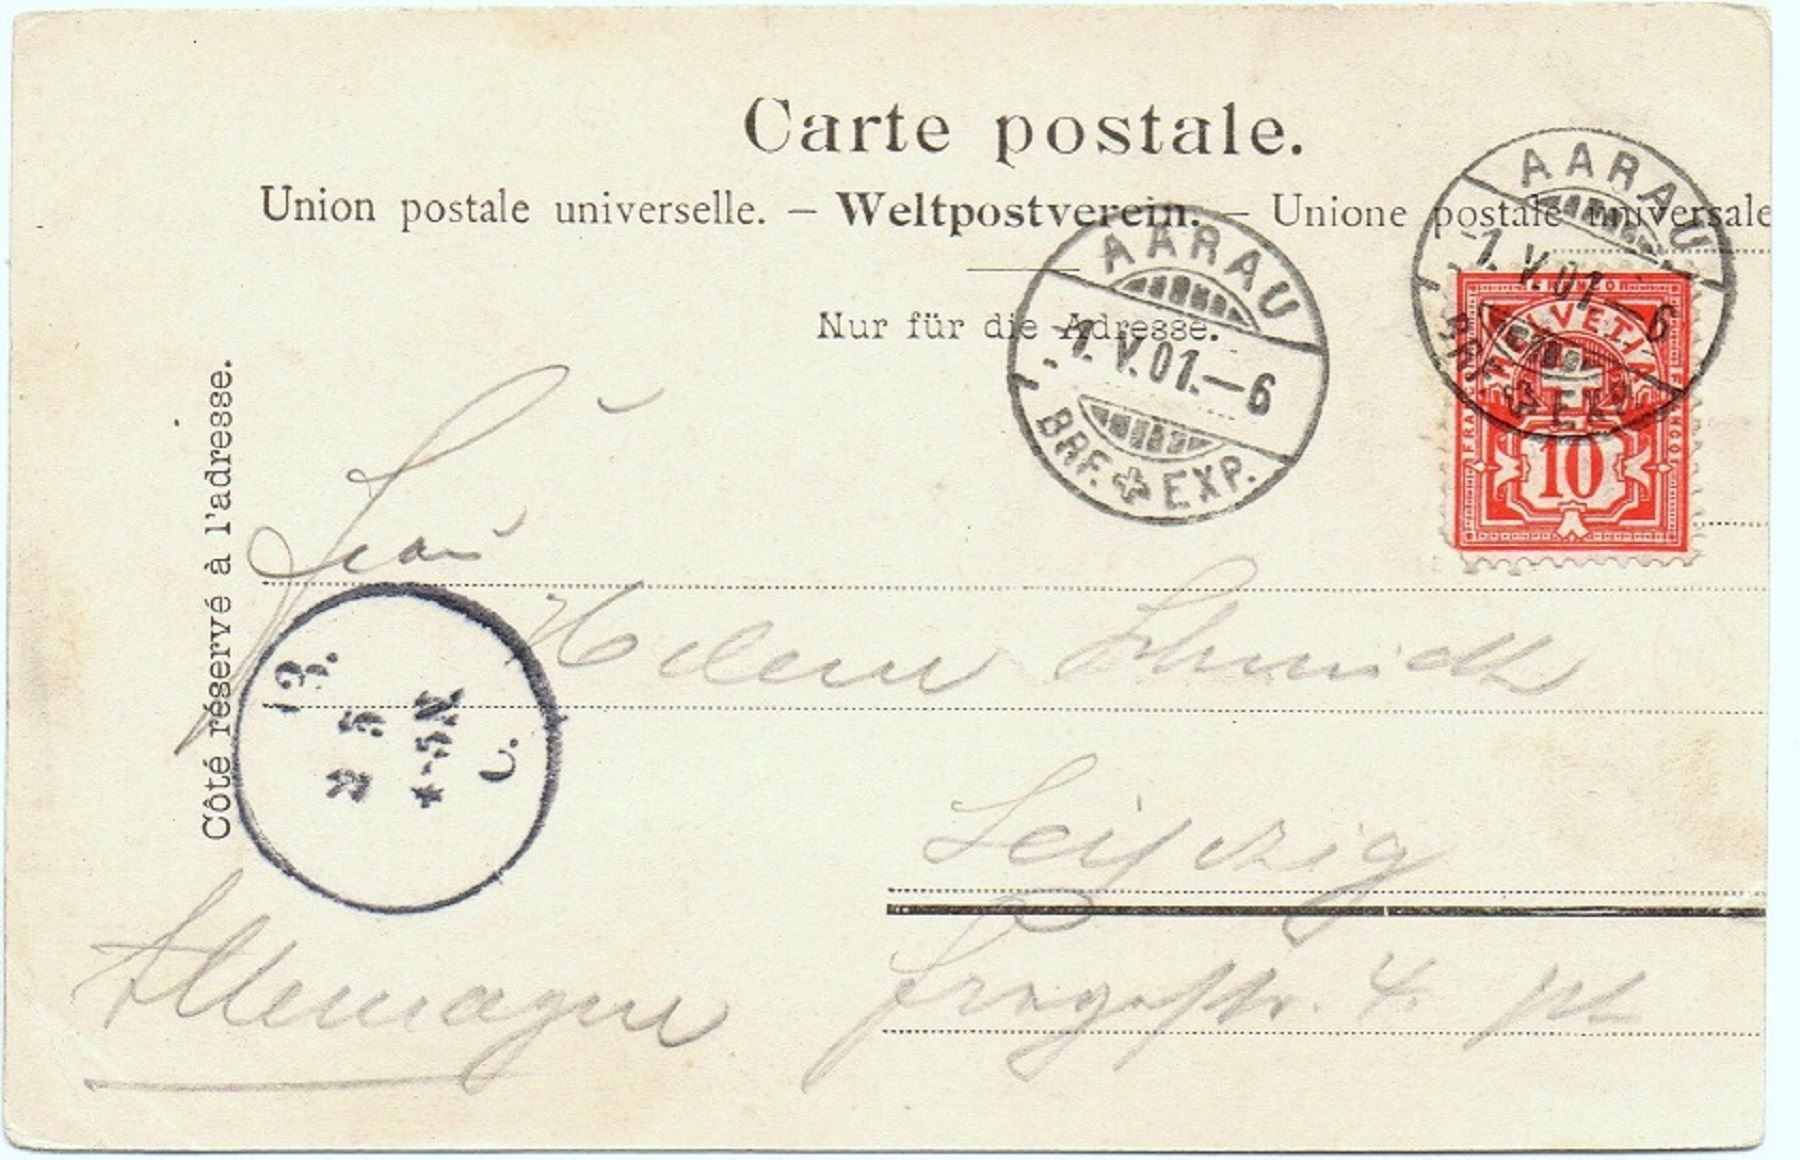 Carte postale.
Union postale universelle. – Weltpostverein. – Unione postale universale
Nur für die Adresse.
Côté réservé à l'adresse.
AARAU
-1. V. 01.-6
BRF. EXP.
AARAU
-1. V. 01.-6
BRF. EXP.
HELVETIA
FRANCO
10
13.
2 5
4-5N
C.
Helene Schmidt
Leipzig
4.
Allemagne